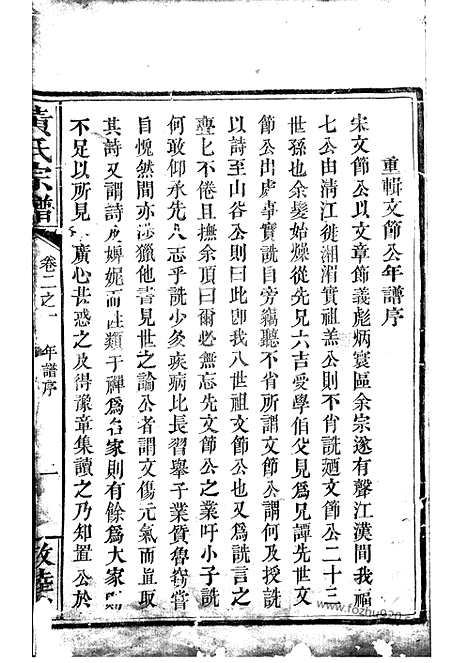 重輯文節公年譜序
宋文節公以文章節義彪炳寰區余宗遂有聲江漢間我福
七公由清江徙湘渭實祖羔公則不肖詵廼文節公二十三
世孫也余髮始燥從先兄六吉受學伯父見為兄譚先世文
節公出處事實詵自旁竊聽不省所謂文節公謂何及授詵
以詩至山谷公則曰此卽我八世祖文節公也又為詵言公
亹亹不倦且撫余頂曰爾必無忘先文節公之業吁小子詵
何敢仰承先人志乎詵少負疾病比長習舉子業質魯窃嘗
自愧然間亦涉獵他書見世之論公者謂文傷元氣而直取
其詩又謂詩如婢妮而性類于禪為名家則有餘為大家
不足以所見 廣心甚惑之及得豫章集讀之乃知置公於
黃氏宗譜
卷二之一
年譜序
一
敦睦
www.fozhu920.com